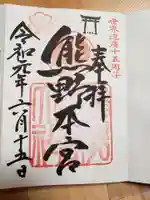 世界遺産十五周年
奉拝
熊野本宮
令和元年六月十五日